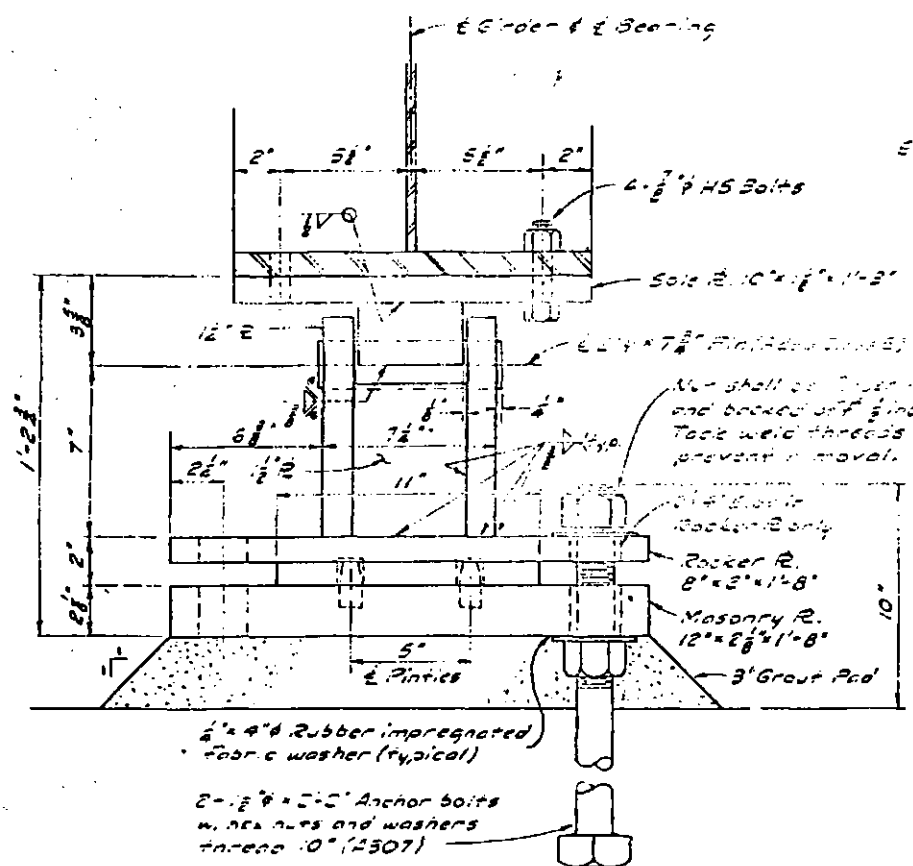 ℄ Girder & ℄ Bearing
2" 5½" 5½" 2"
4-⅞"φ HS Bolts
Sole ℞. 10" x 1½" x 1'-3"
1½" ℞
Nut shall be
and backed off
Tack weld threads
prevent removal.
1'-2¾"
7"
2"
2⅛"
6⅜"
7¼"
2¼"
1½" ℞
11"
¼"
Typ.
Rocker ℞ only
Rocker ℞.
8" x 2" x 1'-8"
Masonry ℞.
12" x 2⅛" x 1'-8"
10"
5"
℄ Pintles
3" Grout Pad
¼" x 4"φ Rubber impregnated
fabric washer (typical)
2-1½"φ x 2'-2" Anchor bolts
w. hex nuts and washers
thread 10" (A307)